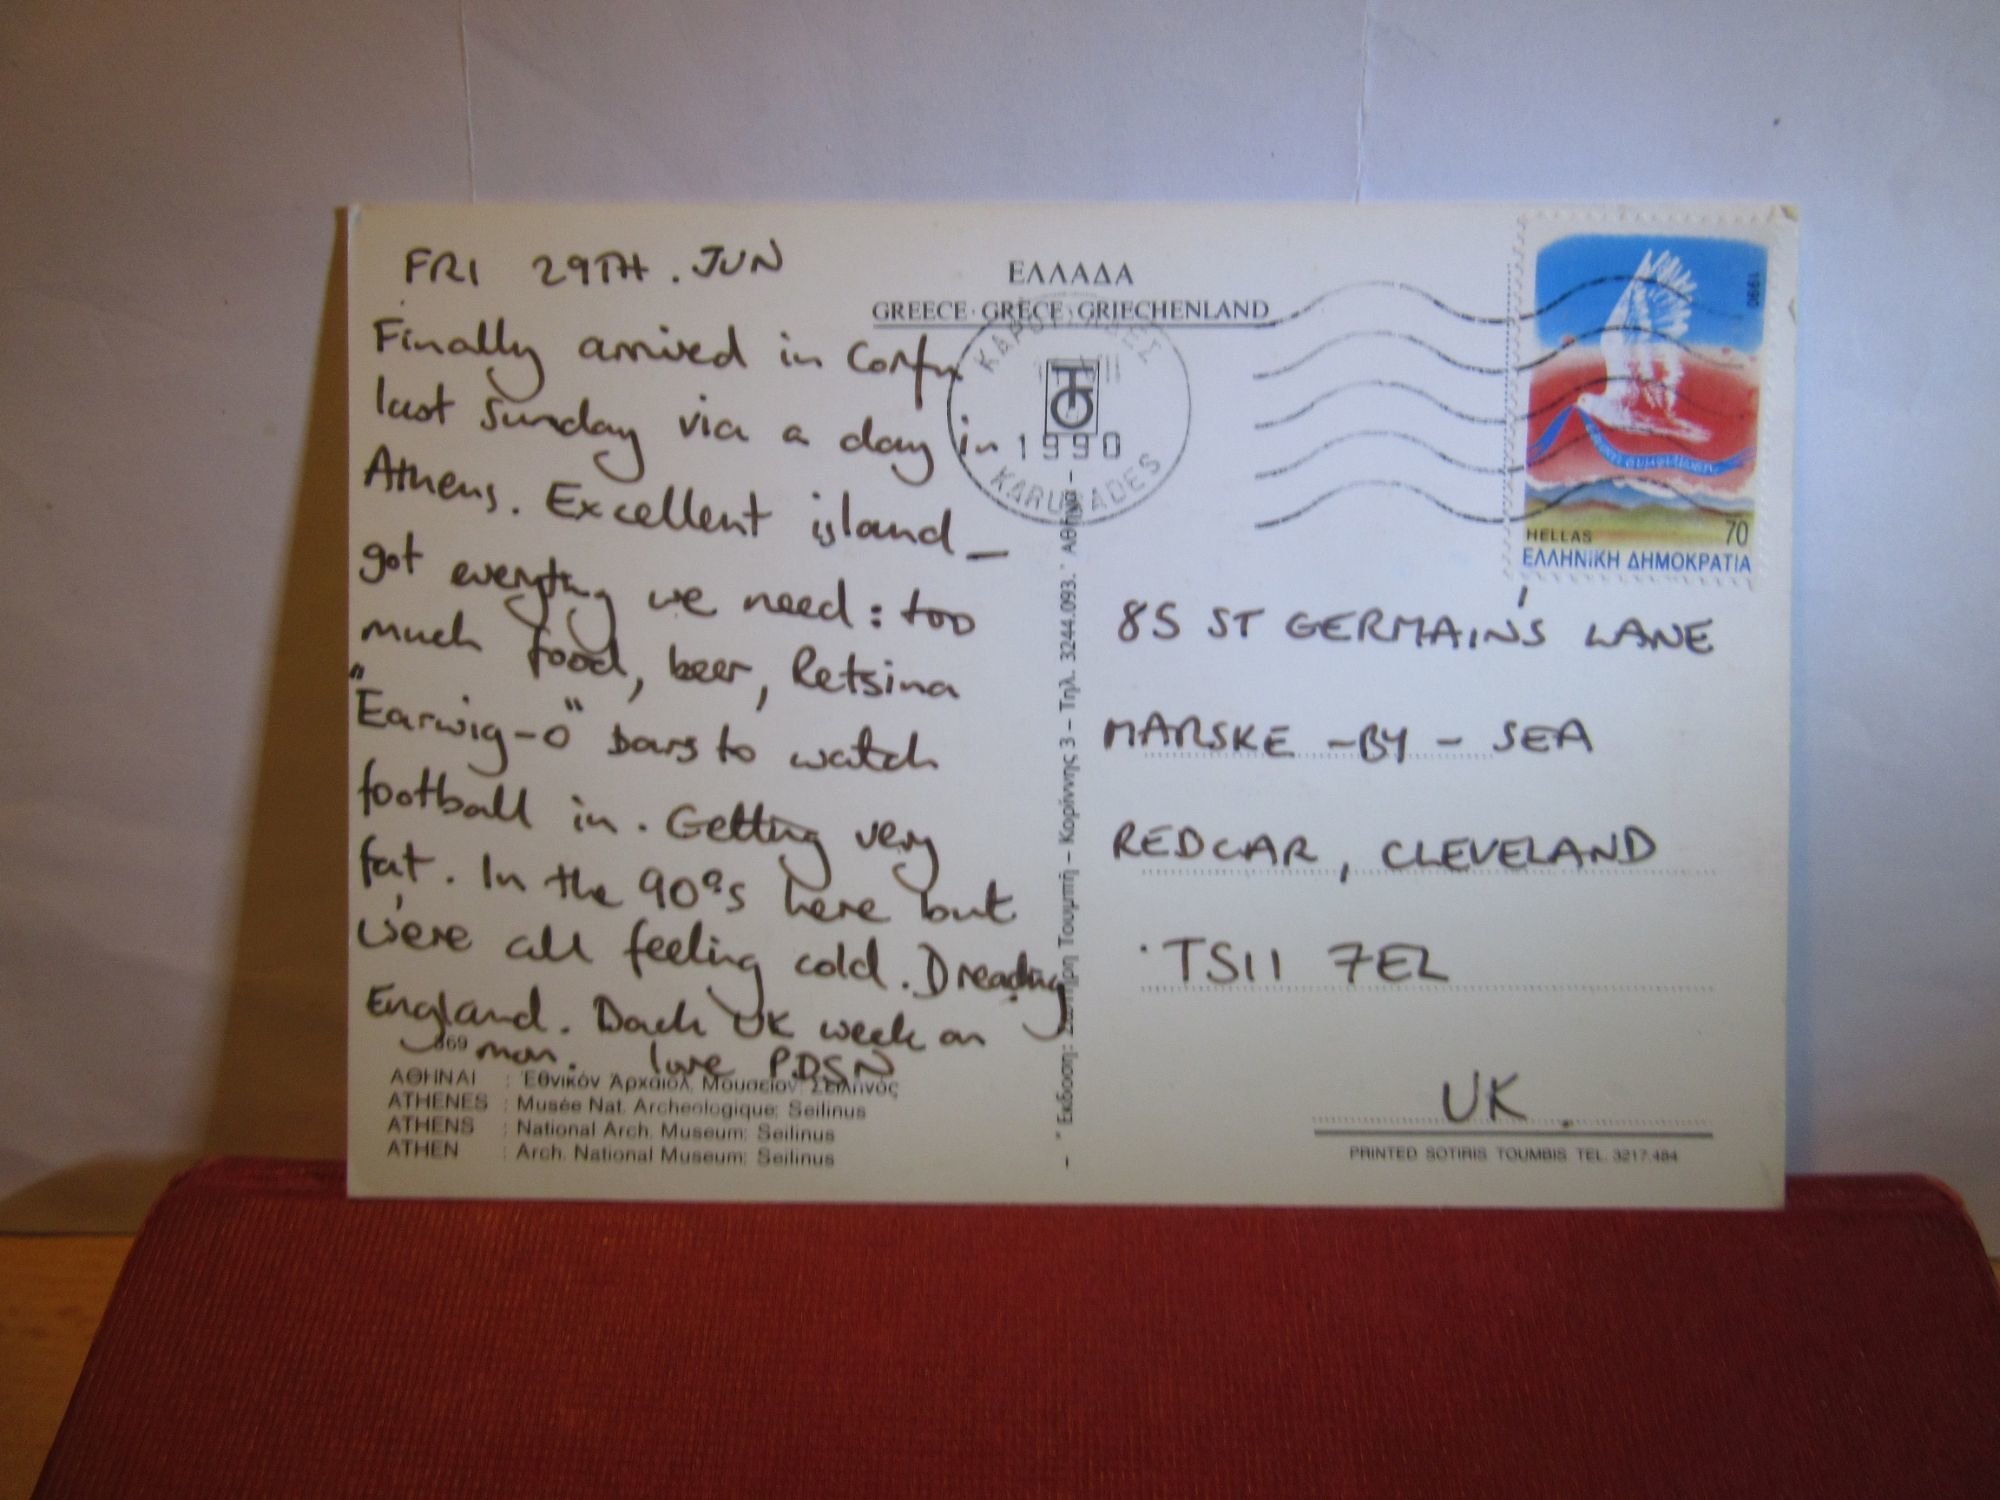 FRI 29TH. JUN
Finally arrived in Corfu
last Sunday via a day in
Athens. Excellent island –
got everything we need: too
much food, beer, Retsina
"Earwig-O" bars to watch
football in. Getting very
fat. In the 90°s here but
we're all feeling cold. Dreading
England. Back UK week on
mon. love PDSN
869
ΑΘΗΝΑΙ : Ἐθνικόν Ἀρχαιολ. Μουσεῖον: Σειληνός
ATHENES : Musée Nat. Archeologique: Seilinus
ATHENS : National Arch. Museum: Seilinus
ATHEN : Arch. National Museum: Seilinus
ΕΛΛΑΔΑ
GREECE · GRECE · GRIECHENLAND
1990
KARUSADES
Ἔκδοση: Σωτήρη Τουμπή – Κορίννης 3 – Τηλ. 3244.093. Ἀθήνα –
1990
HELLAS 70
ΕΛΛΗΝΙΚΗ ΔΗΜΟΚΡΑΤΙΑ
85 ST GERMAIN'S LANE
MARSKE-BY-SEA
REDCAR, CLEVELAND
TS11 7EL
UK.
PRINTED SOTIRIS TOUMBIS TEL. 3217.484